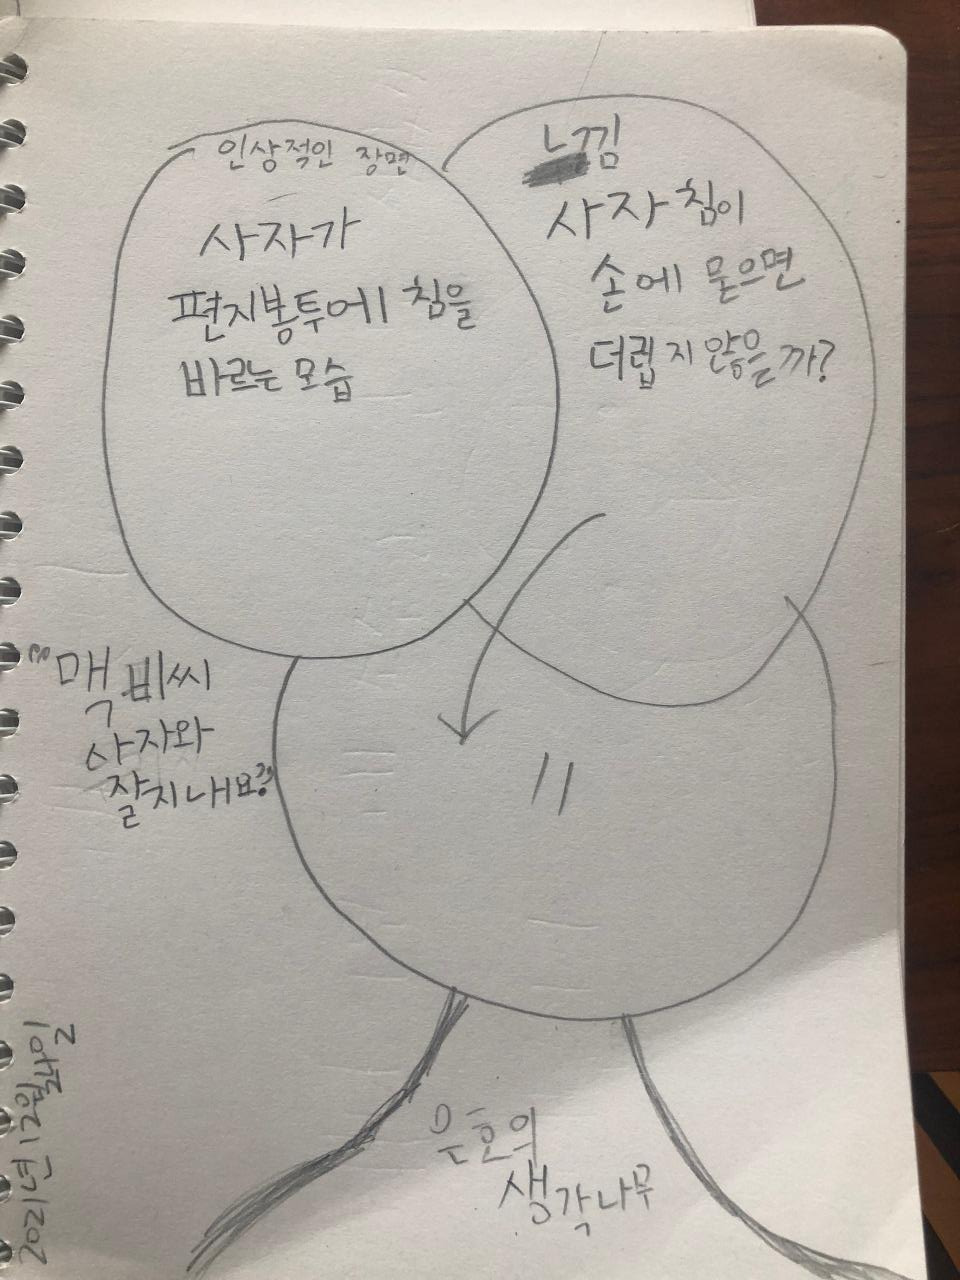 인상적인 장면
사자가
편지봉투에 침을
바르는 모습
느낌
사자 침이
손에 묻으면
더럽지 않을까?
맥비씨
사자와
잘지내요?
은호의
생각나무
2021년 12월